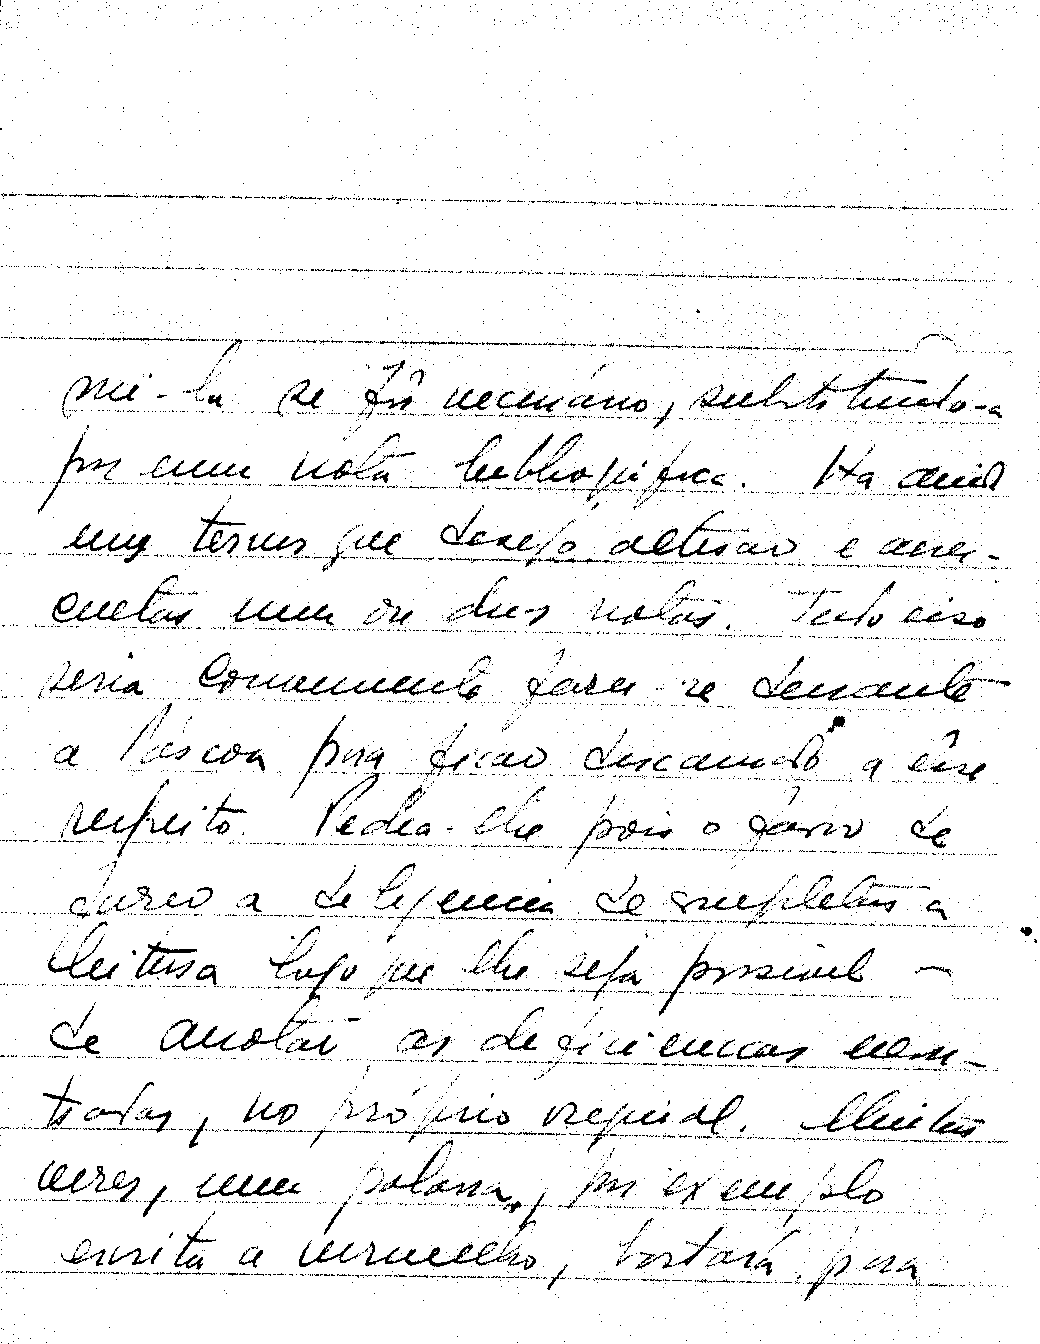 mi-la se fôr necessário, substituindo-a
por uma nota bibliográfica. Ha ainda
uns termos que desejo alterar e acres-
centar uma ou duas notas. Tudo isso
seria conveniente fazer-se durante
a Páscoa para ficar descansado a êsse
respeito. Pedia-lhe pois o favor de
fazer a diligencia de completar a
leitura logo que lhe seja possivel —
de anotar as deficiencias encon-
tradas, no próprio original. Muitas
vezes, uma palavra, por exemplo
escrita a vermelho, bastará para